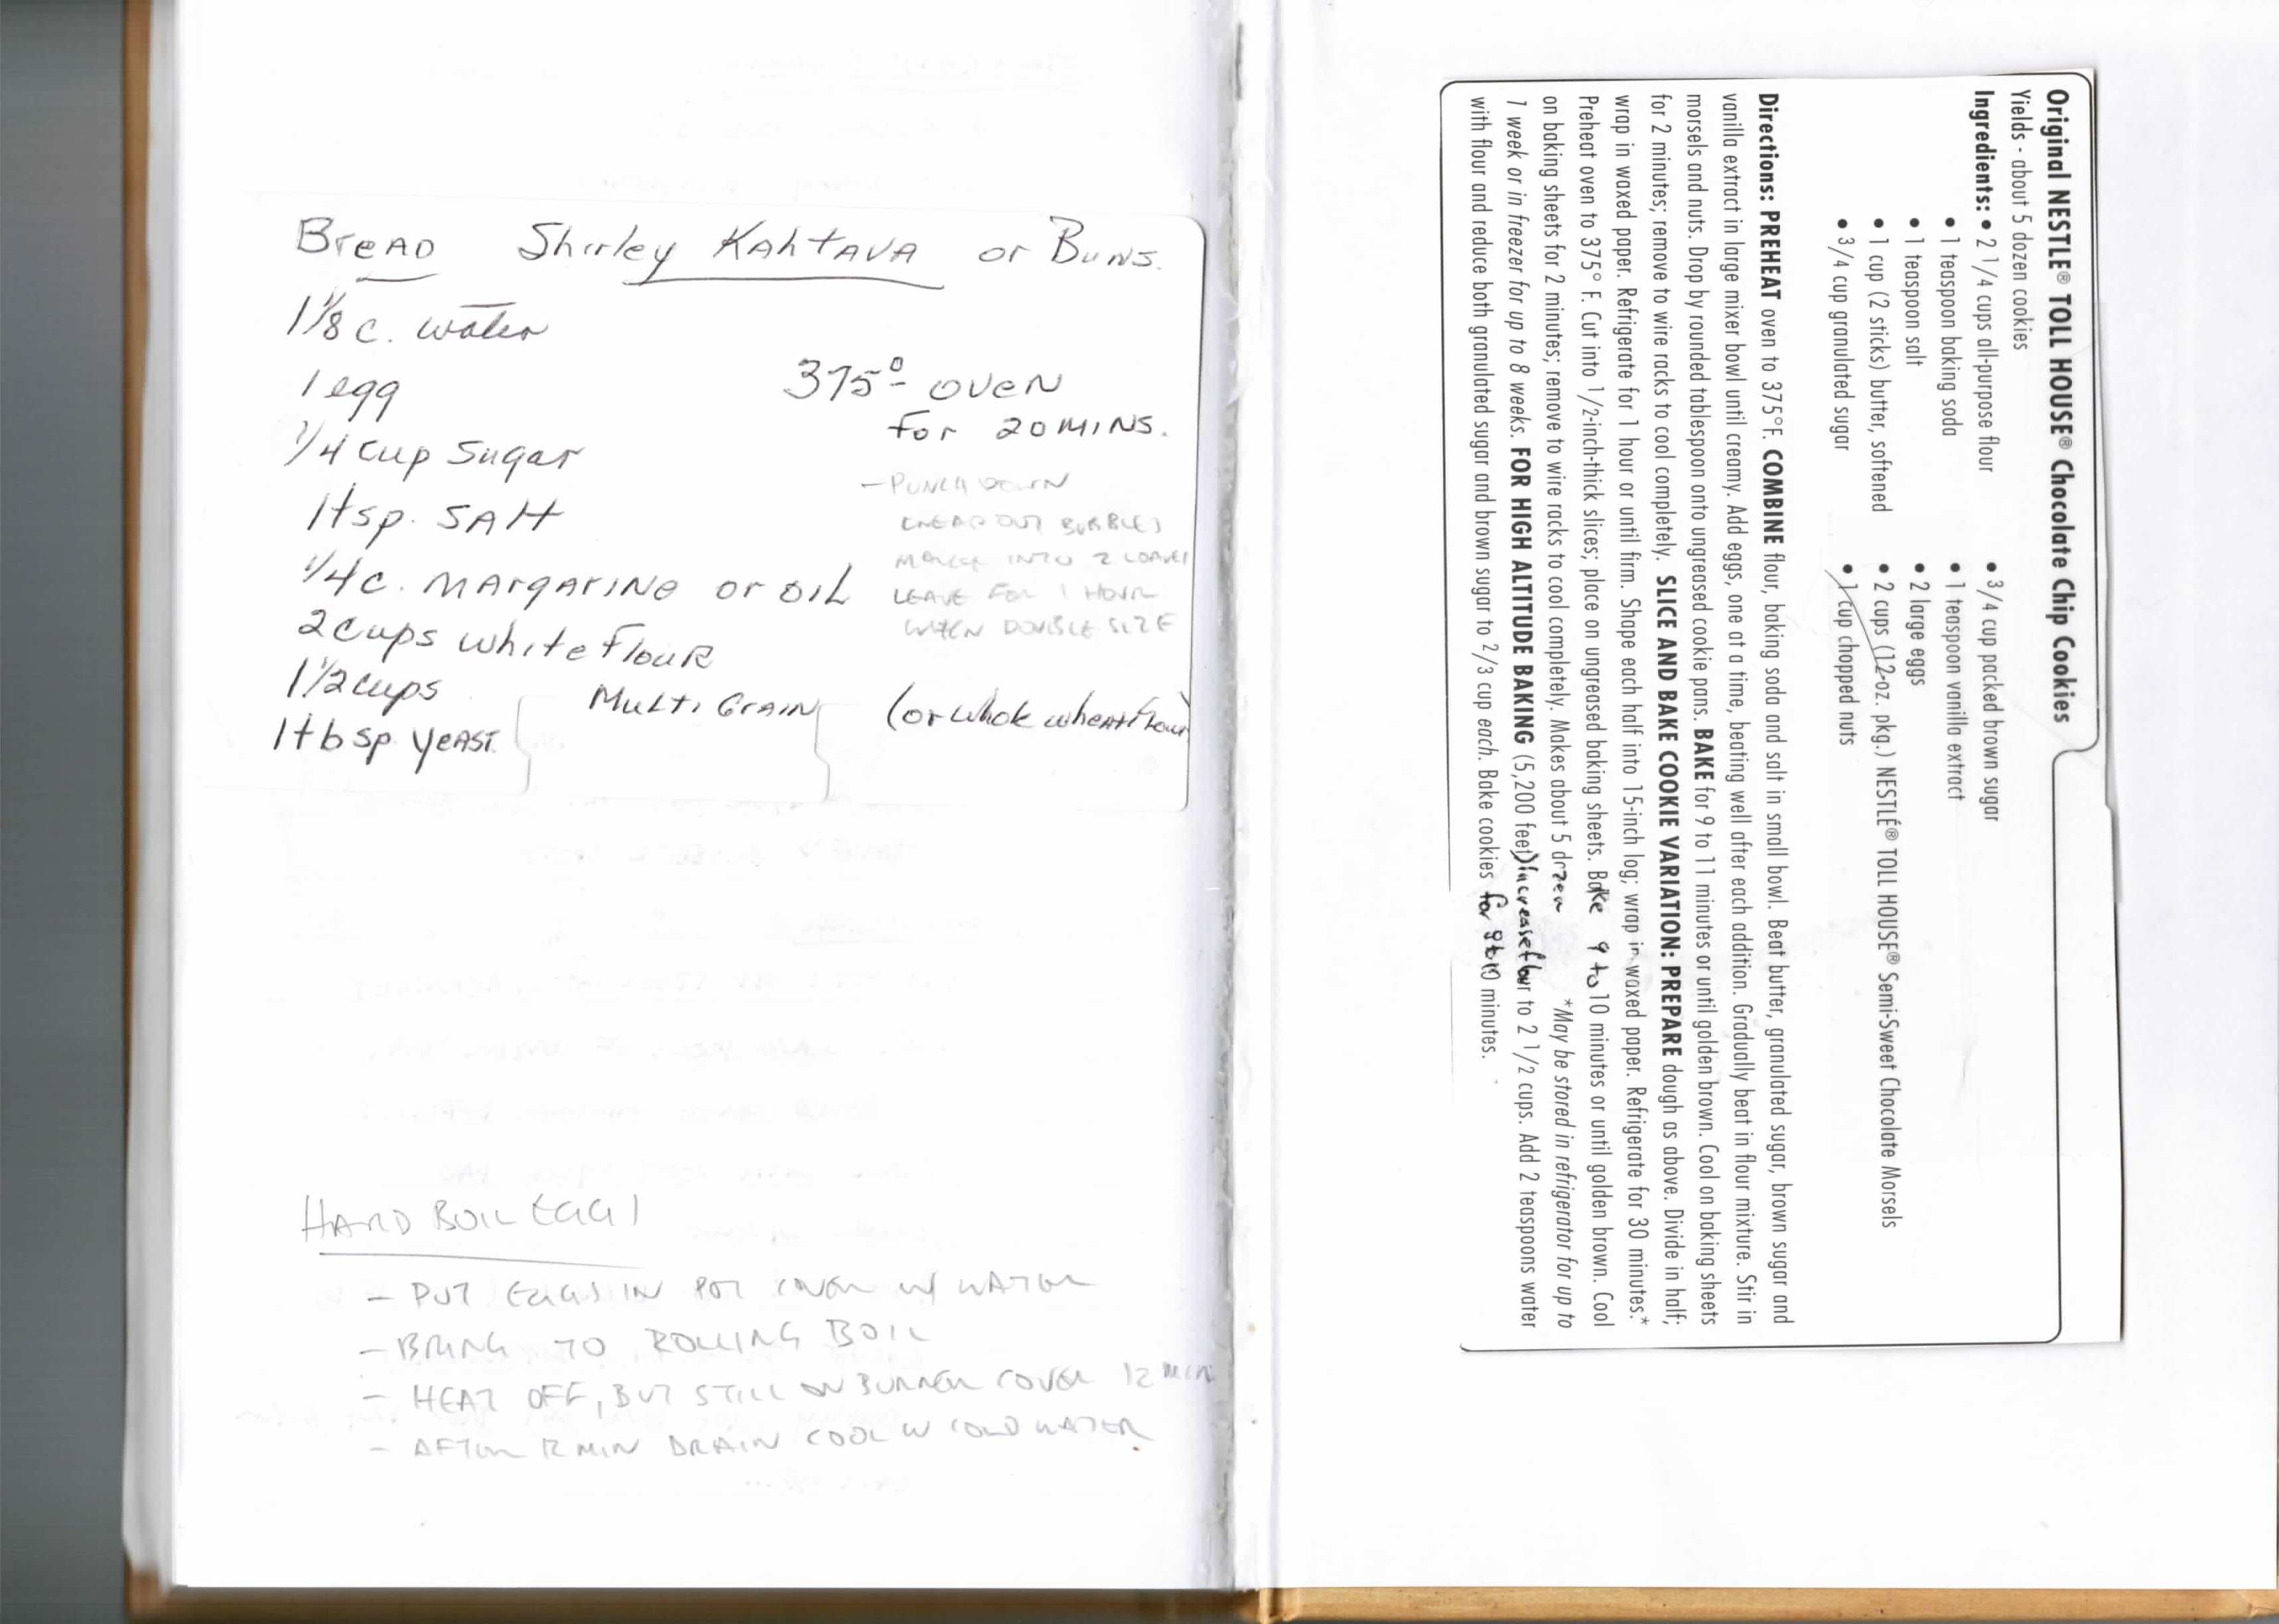 Bread Shirley Kahtava or Buns.
1 1/8 c. water
1 egg
1/4 cup Sugar
1 tsp. SAlt
1/4 c. MArgArINe or OIL
2 cups white Flour
1 1/2 cups Multi Grain (or whole wheat flour)
1 tbsp. YeAST.
375° OVEN
For 20 MINS.
- PUNCH DOWN
KNEAD OUT BUBBLES
MAKE INTO 2 LOAVES
LEAVE FOR 1 HOUR
WHEN DOUBLE SIZE
HARD BOIL EGGS
- PUT EGGS IN POT COVER W/ WATER
- BRING TO ROLLING BOIL
- HEAT OFF, BUT STILL ON BURNER COVER 12 MIN
- AFTER 12 MIN DRAIN COOL W COLD WATER
Original NESTLÉ® TOLL HOUSE® Chocolate Chip Cookies
Yields - about 5 dozen cookies
Ingredients: • 2 1/4 cups all-purpose flour
• 1 teaspoon baking soda
• 1 teaspoon salt
• 1 cup (2 sticks) butter, softened
• 3/4 cup granulated sugar
• 3/4 cup packed brown sugar
• 1 teaspoon vanilla extract
• 2 large eggs
• 2 cups (12-oz. pkg.) NESTLÉ® TOLL HOUSE® Semi-Sweet Chocolate Morsels
• 1 cup chopped nuts
Directions: PREHEAT oven to 375°F. COMBINE flour, baking soda and salt in small bowl. Beat butter, granulated sugar, brown sugar and
vanilla extract in large mixer bowl until creamy. Add eggs, one at a time, beating well after each addition. Gradually beat in flour mixture. Stir in
morsels and nuts. Drop by rounded tablespoon onto ungreased cookie pans. BAKE for 9 to 11 minutes or until golden brown. Cool on baking sheets
for 2 minutes; remove to wire racks to cool completely. SLICE AND BAKE COOKIE VARIATION: PREPARE dough as above. Divide in half;
wrap in waxed paper. Refrigerate for 1 hour or until firm. Shape each half into 15-inch log; wrap in waxed paper. Refrigerate for 30 minutes.*
Preheat oven to 375° F. Cut into 1/2-inch-thick slices; place on ungreased baking sheets. Bake 9 to 10 minutes or until golden brown. Cool
on baking sheets for 2 minutes; remove to wire racks to cool completely. Makes about 5 dozen *May be stored in refrigerator for up to
1 week or in freezer for up to 8 weeks. FOR HIGH ALTITUDE BAKING (5,200 feet) increase flour to 2 1/2 cups. Add 2 teaspoons water
with flour and reduce both granulated sugar and brown sugar to 2/3 cup each. Bake cookies for 9 to 10 minutes.